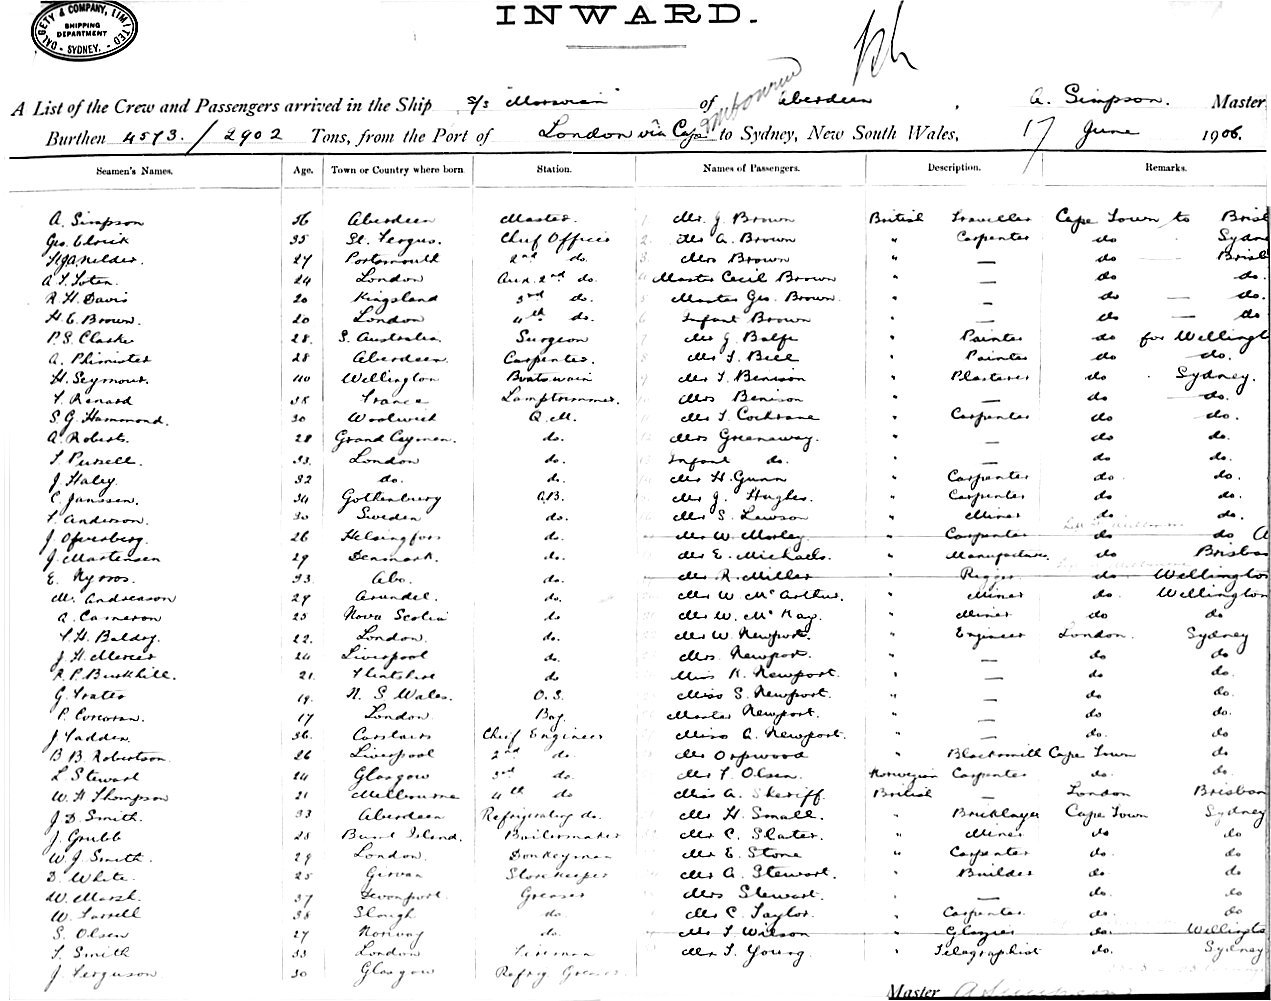 DALGETY & COMPANY, LIMITED
SHIPPING DEPARTMENT
SYDNEY.
INWARD.
A List of the Crew and Passengers arrived in the Ship s/s "Moravian" of Aberdeen, A. Simpson. Master
Burthen 4573/2902 Tons, from the Port of London via Cape to Sydney, New South Wales, 17 June 1906.
Seamen's Names. Age. Town or Country where born Station. Names of Passengers. Description. Remarks.
A. Simpson 56 Aberdeen Master. 1 Mr. J. Brown British Traveller Cape Town to Brisb
Geo. 35 St. Fergus. Chief Officer 2 Mr A. Brown " Carpenter do Sydne
27 Portsmouth 2nd do. 3 Mrs Brown " — do Brisb
24 London Aux. 2nd do. Master Cecil Brown " — do do.
R. H. Davis 20 Kingsland 3rd do. Master Geo. Brown. " — do — do.
H. C. Brown. 20 London 4th do. Infant Brown " — do — do
P. S. Clarke 28. S. Australia. Surgeon 7 Mr J. Balfe " Painter do for Wellingt
A. Phimister 28 Aberdeen. Carpenter. Mr T. Bell " Painter do do.
H. Seymour. 40 Wellington Boatswain Mr T. Benison " Plasterer do Sydney.
T. Renard 38 France Lamptrimmer. Mrs Benison " — do do.
S. G. Hammond. 30 Woolwich Q.M. Mr T. Cochrane " Carpenter do do.
A. Roberts. 28 Grand Cayman. do. Mrs Greenaway. " — do do.
T. Pursell. 33. London do. Infant do. " — do do.
J. Haley. 32 do. do. Mr H. Gunn " Carpenter do do.
C. Janssen. 34 Gothenburg A.B. Mr J. Hughes. " Carpenter do do.
T. Anderson. 30 Sweden do. Mr S. Lawson " Miner do do.
J. Ofverberg. 26 Helsingfors do. Mr W. Morley " Carpenter do do
J. Martensen 29 Denmark. do. Mr E. Michaels. " Manufacturer. do Brisban
E. Nyroos. 33. Abo. do. Mr R. Miller " Rigger do Wellington
M. Andreason 29 Arundel. do. Mr W. McArthur. " Miner do Wellington
A. Cameron 25 Nova Scotia do Mr W. McKay. " Miner do do
T. H. Baldry. 22. London. do. Mr W. Newport. " Engineer London. Sydney
J. H. Mercer 24 Liverpool do. Mrs. Newport. " — do do
R. P. Burkhill. 21. Flintshire do Miss K. Newport. " — do do.
G. 19. N. S. Wales. O.S. Miss S. Newport. " — do do.
P. Corcoran. 17 London Boy. Master Newport. " — do do.
J. Fadden. 36. Carstairs Chief Engineer Miss A. Newport. " — do. do.
B. B. Robertson. 26 Liverpool 2nd do. Mr Orpwood " Blacksmith Cape Town do
L. Stewart 24 Glasgow 3rd do. Mr T. Olsen. Norwegian Carpenter do. do.
W. H. Thompson 21 Melbourne 4th do Miss A. Skeriff. British — London Brisban
J. D. Smith. 33 Aberdeen Refrigerating do. Mr H. Small. " Bricklayer Cape Town Sydney
J. Grubb 28 Island. Boilermaker Mr C. Slater. " Miner do do
W. J. Smith. 29 London. Donkeyman Mr E. Stone " Carpenter do. do
D. White. 25 Girvan Storekeeper Mr A. Stewart. " Builder do do
W. Marsh. 37 Devonport. Greaser Mrs Stewart. " — do. do.
W. Farrell 38 Slough do. Mr C. Taylor. " Carpenter do. do
S. Olsen 27 Norway do. Mr T. Wilson " Glazier do. Wellingto
T. Smith 33 London Fireman Mr T. Young. " Telegraphist do. Sydney
J. Ferguson 30 Glasgow Refrig. Greaser
Master A Simpson